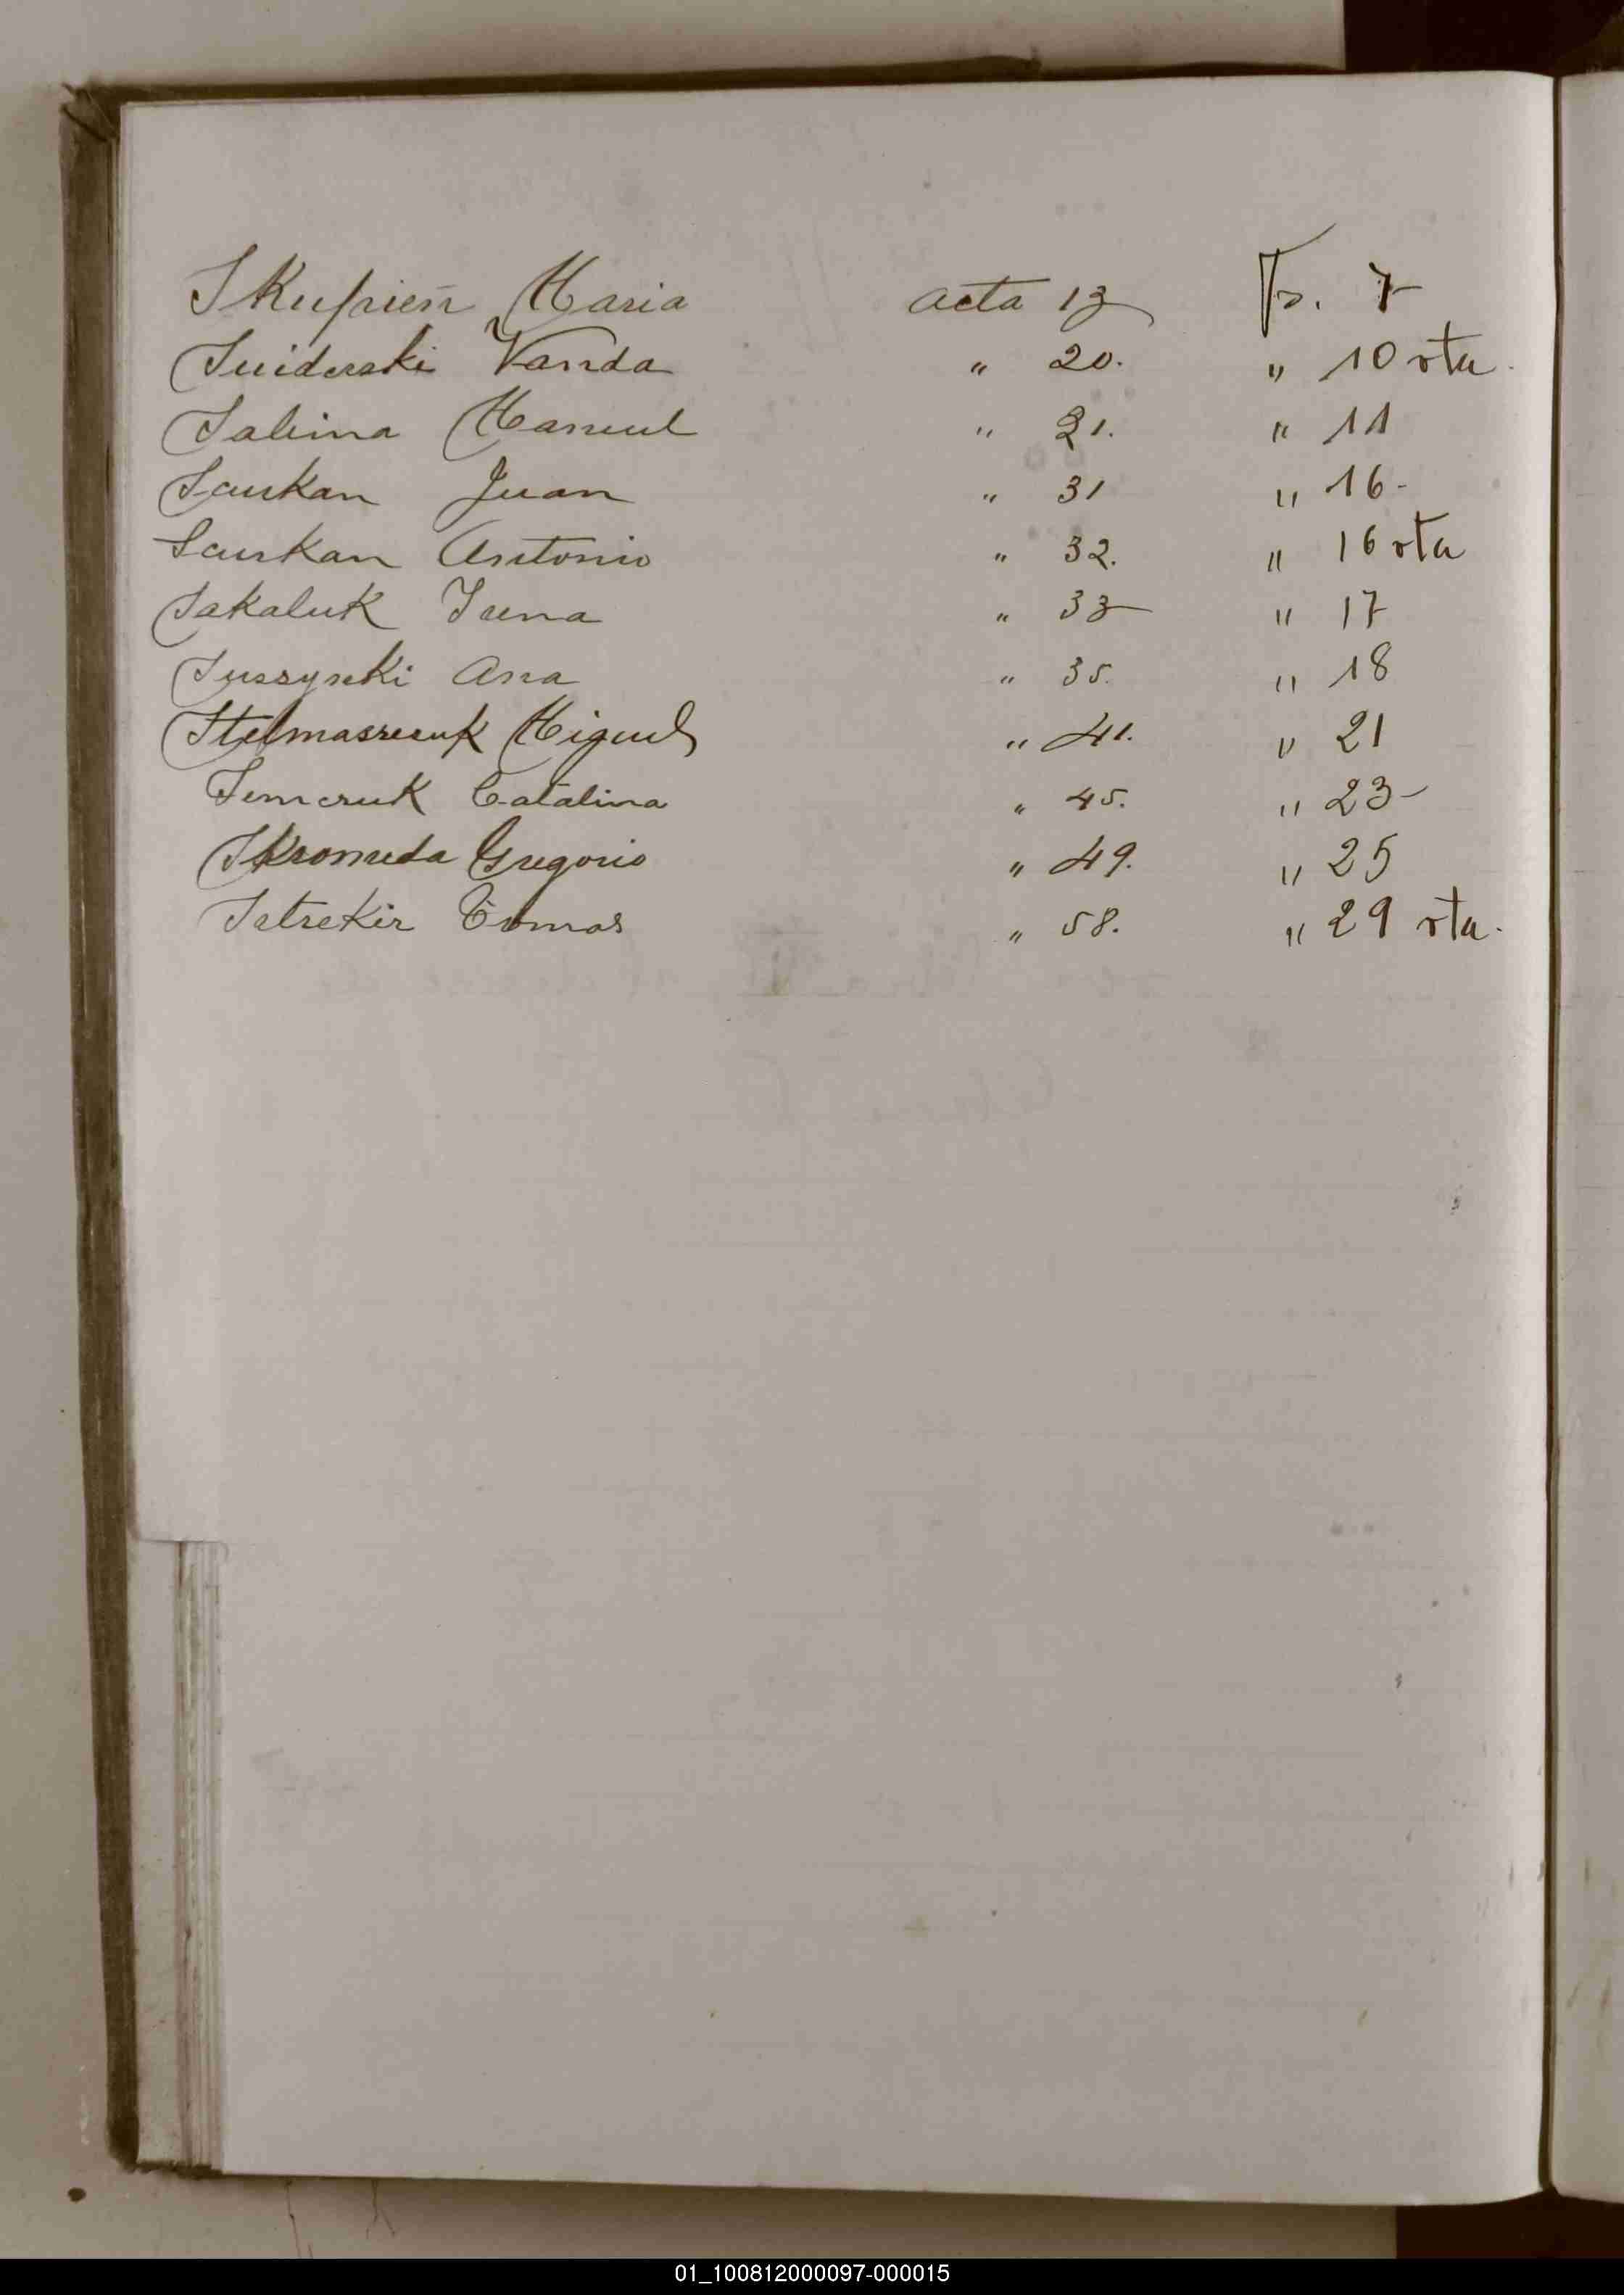 Skupień Maria acta 13 Fs. 7
Suiderski Vanda " 20. " 10 vta.
Salina Manuel " 21. " 11
Saukan Juan " 31 " 16-
Saukan Antonio " 32. " 16 vta
Sakaluk Irena " 33 " 17
Suszynski Ana " 35. " 18
Stelmaszczuk Miguel " 41. " 21
Semczuk Catalina " 45. " 23-
Skromeda Gregorio " 49. " 25
Tomas " 58. " 29 vta.
01_100812000097-000015